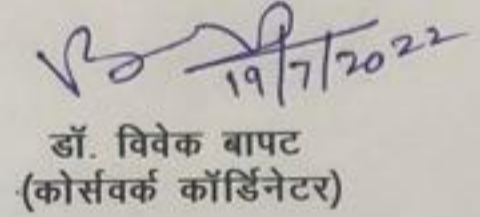 19/7/2022
डॉ. विवेक बापट
(कोर्सवर्क कॉर्डिनेटर)